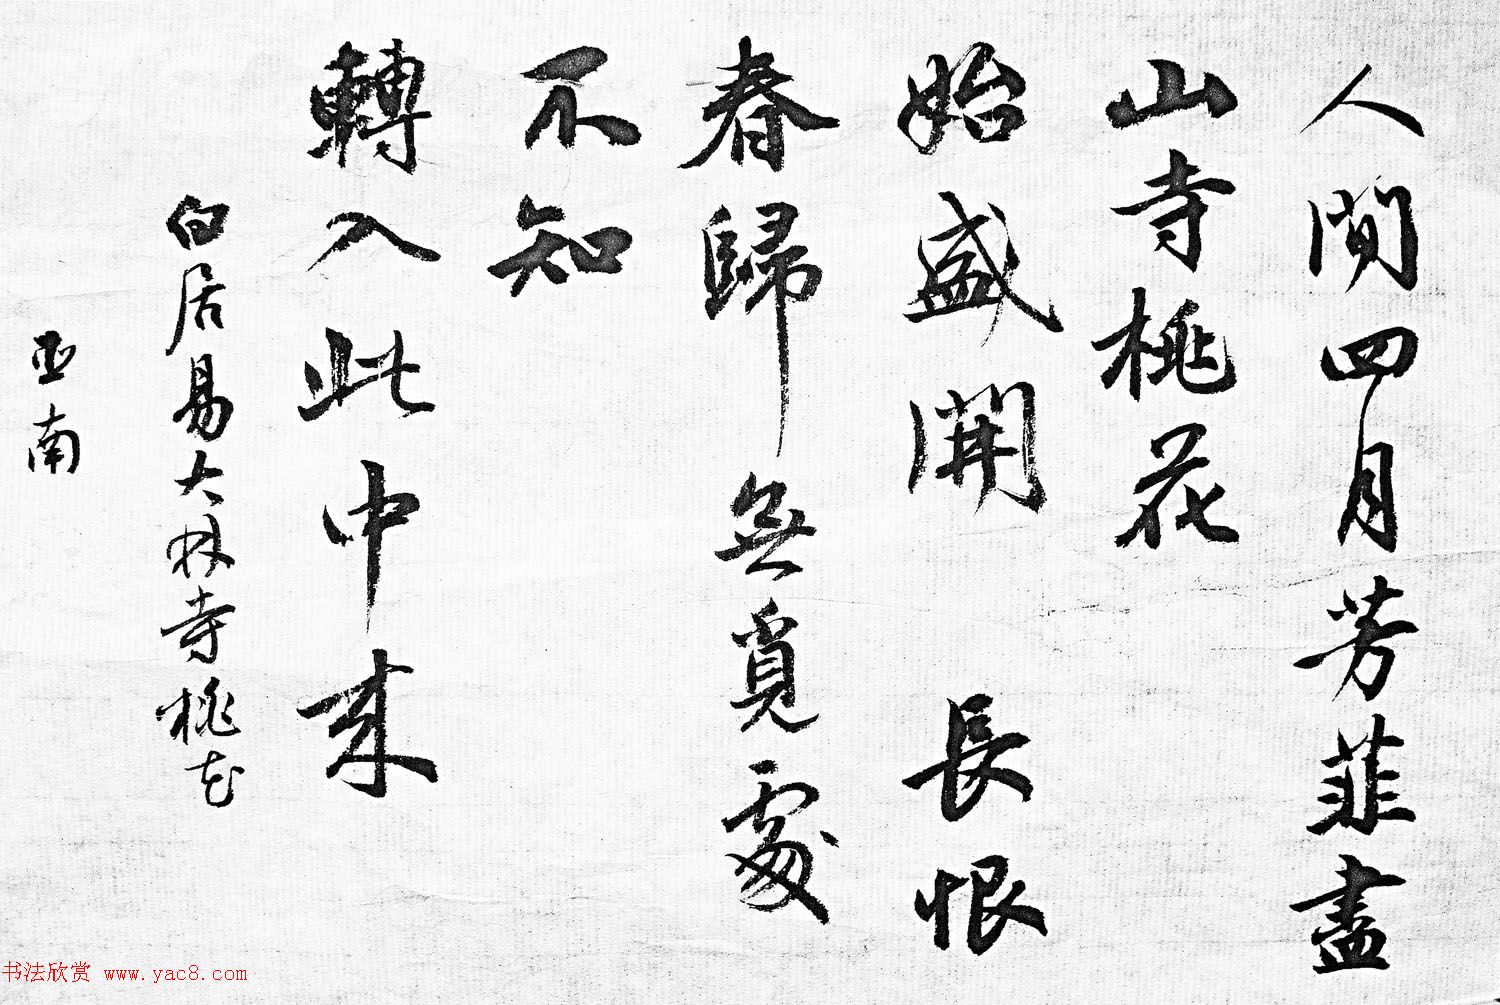 人間四月芳菲盡
山寺桃花
始盛開 長恨
春歸無覓處
不知
轉入此中来
白居易大林寺桃花
亚南
书法欣赏 www.yac8.com